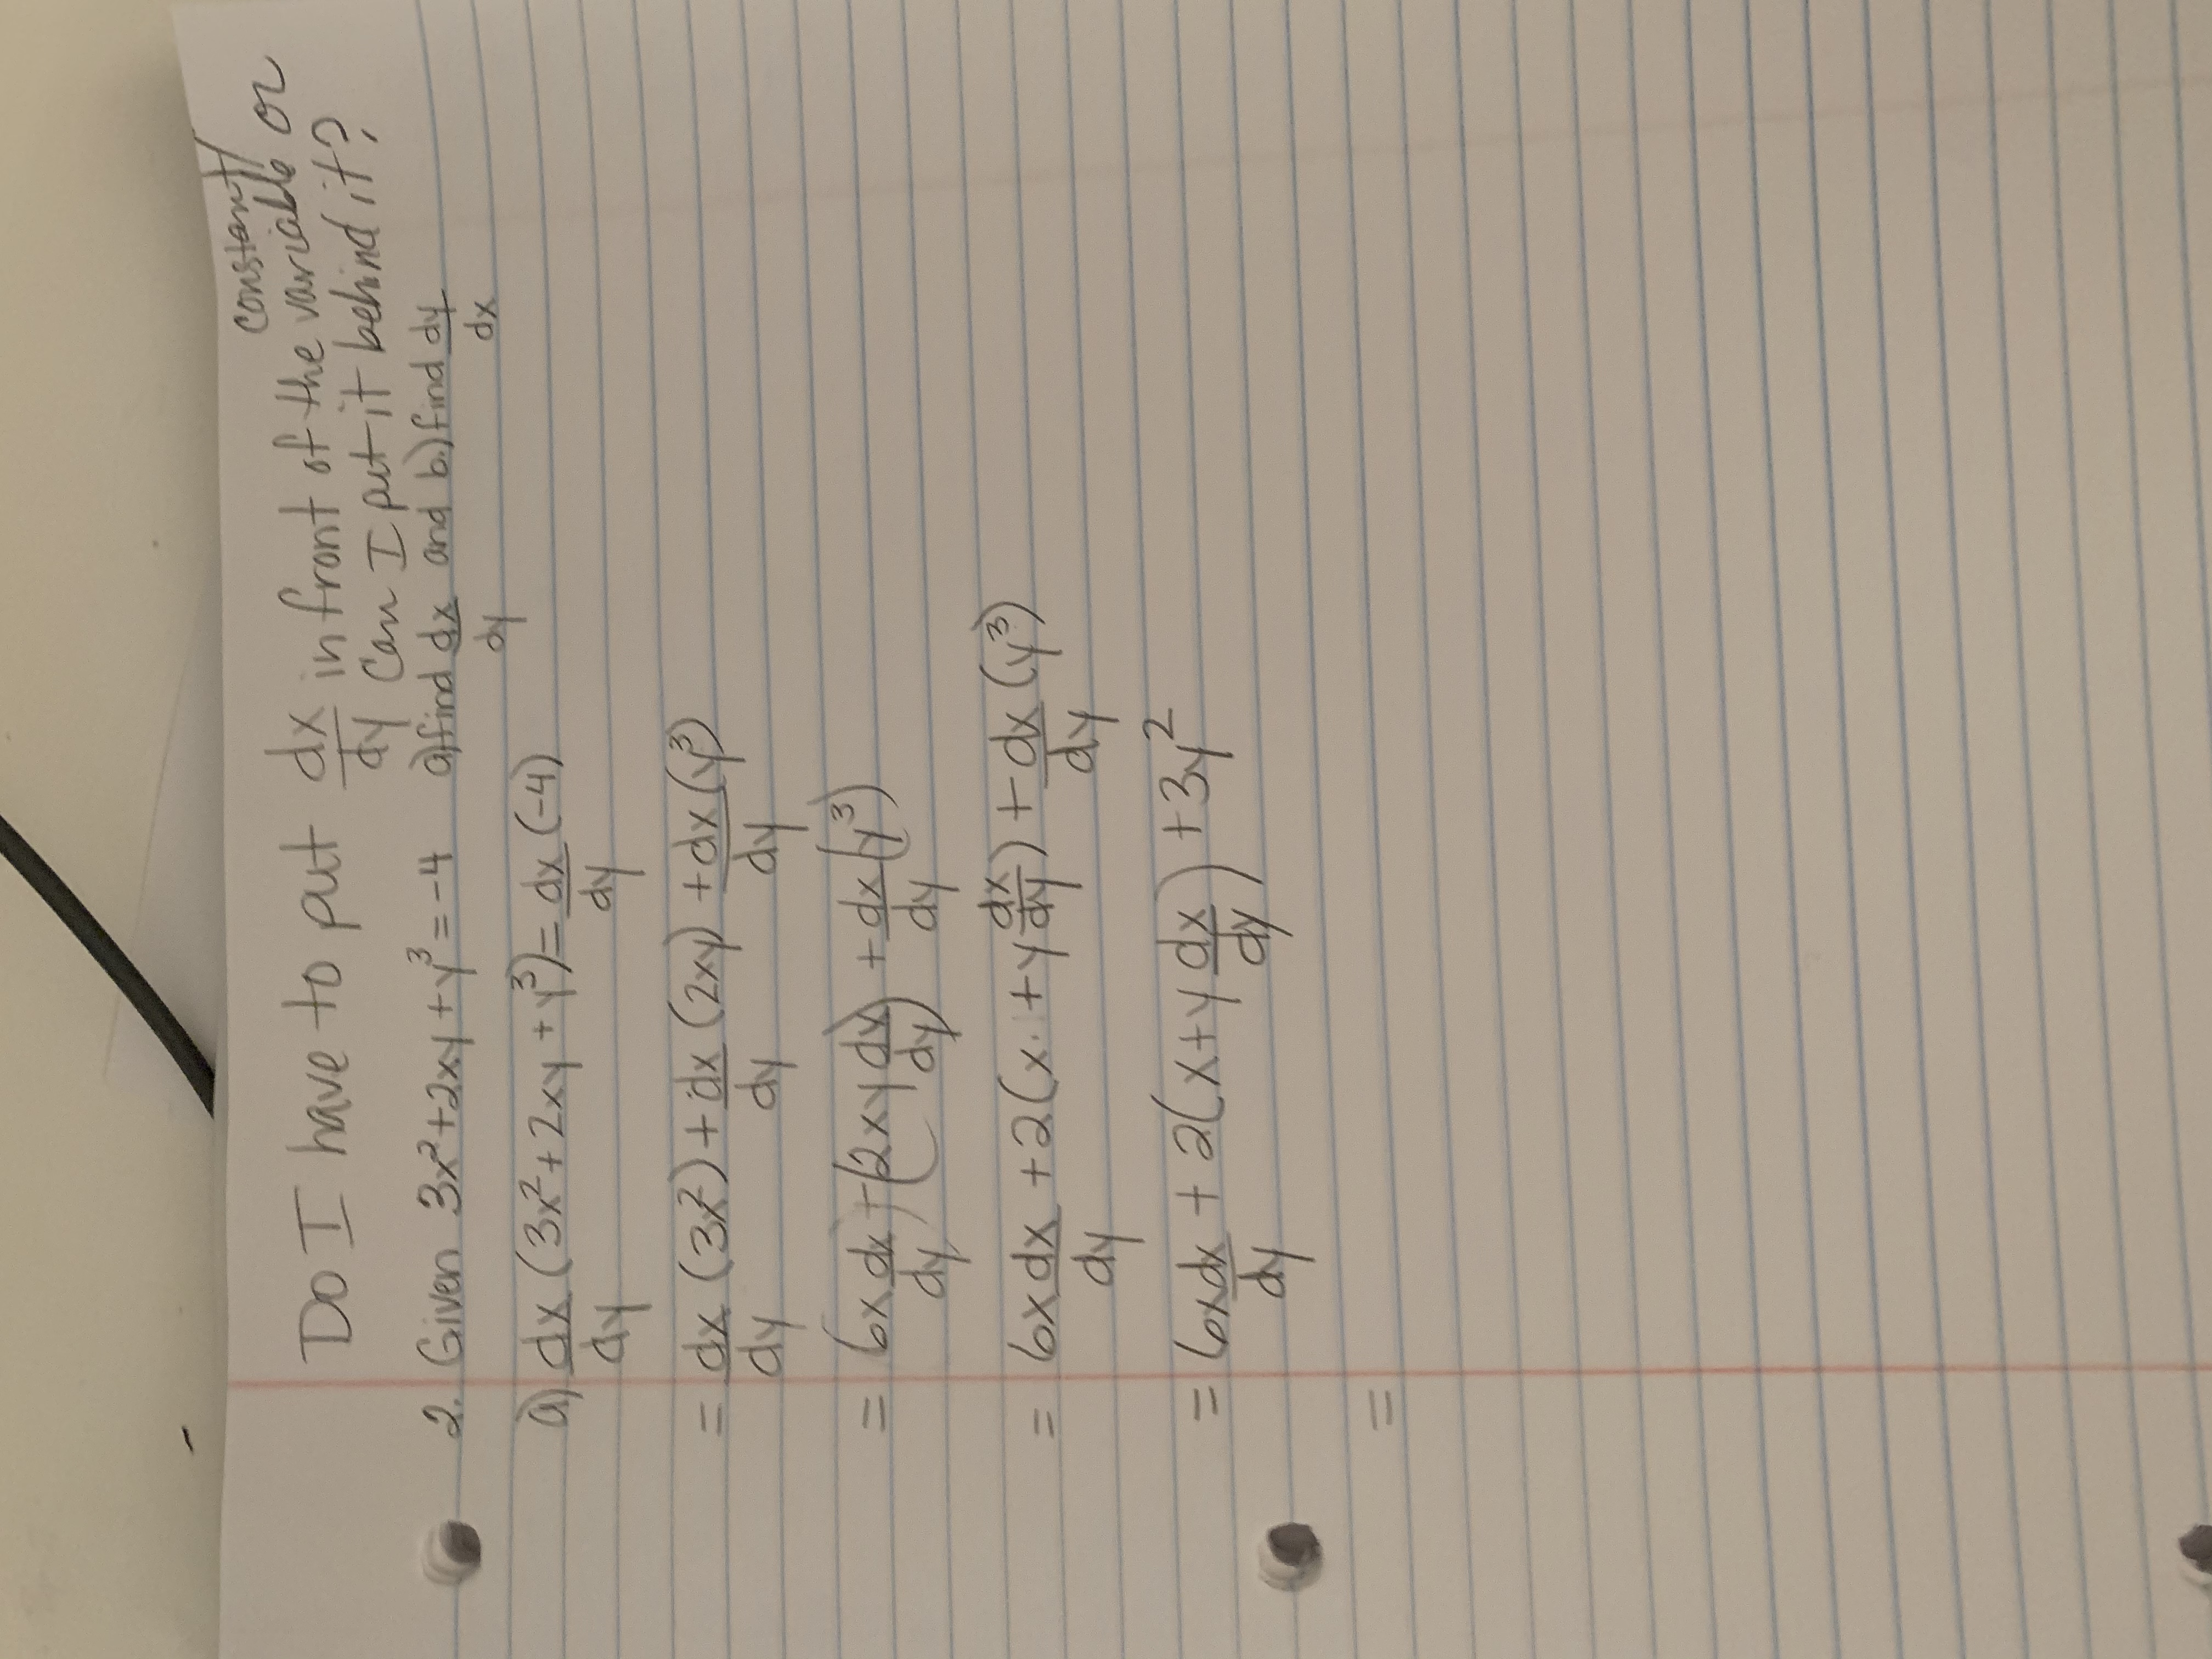 constant/
Do I have to put dx/dy in front of the variable or
can I put it behind it?
2. Given 3x²+2xy+y³=-4 a) find dx/dy and b.) find dy/dx
a) dx/dy (3x²+2xy+y³)= dx/dy (-4)
= dx/dy (3x²)+dx/dy (2xy)+dx/dy(y³)
= 6x dx/dy + (2xy dx/dy) + dx/dy(y³)
= 6x dx/dy +2(x· 1+y dx/dy)+dx/dy (y³)
= 6x dx/dy + 2(x+y dx/dy) +3y²
=